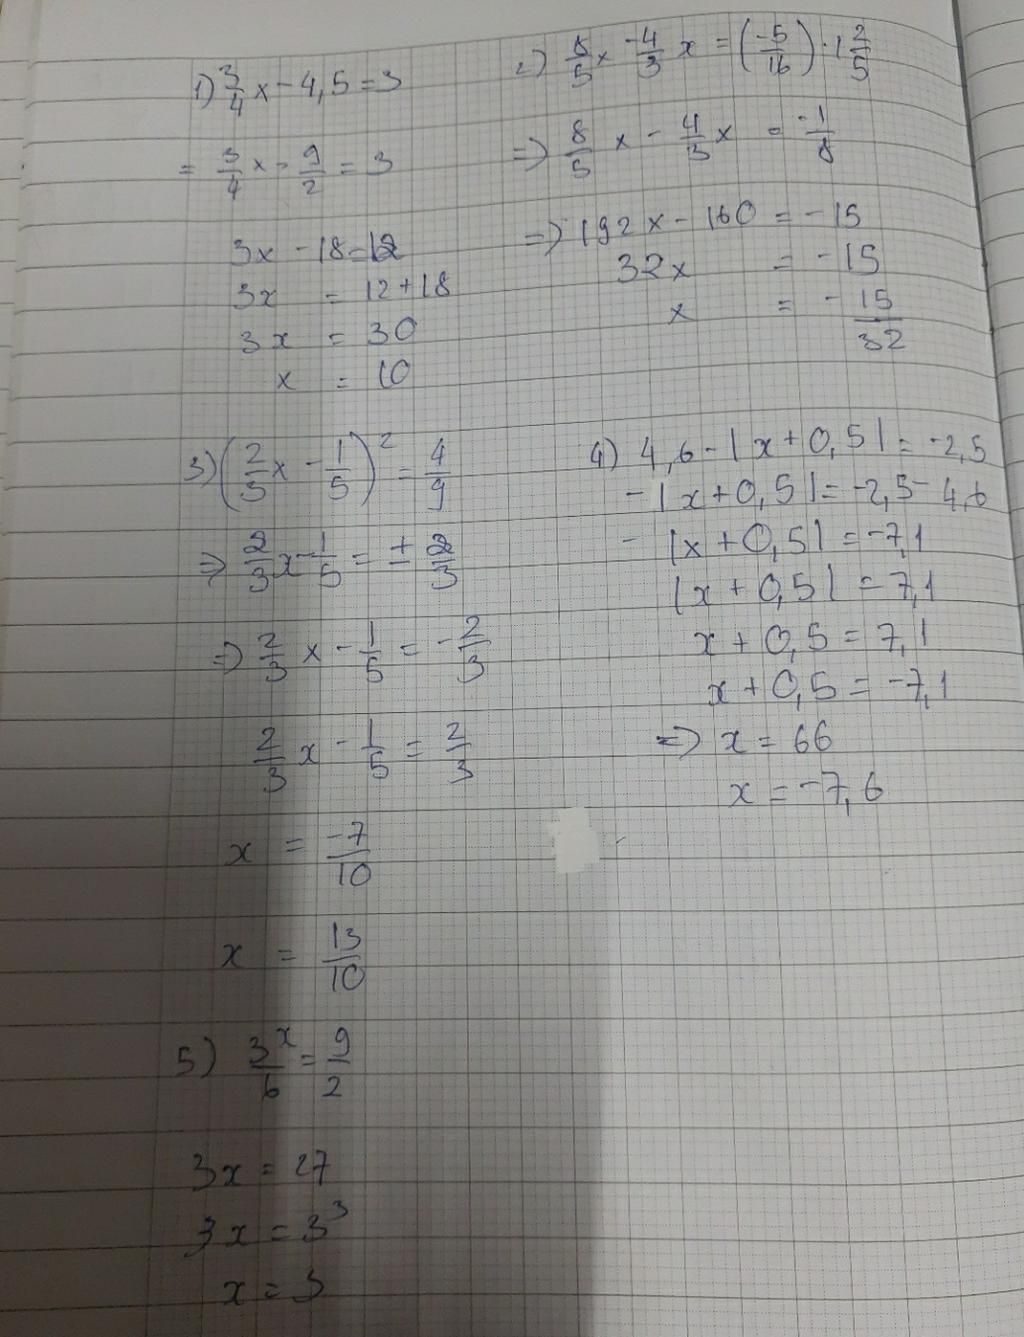 1) 3/4 x - 4,5 = 3
= 3/4 x - 9/2 = 3
3x - 18 = 12
3x = 12 + 18
3x = 30
x = 10
2) 8/5 x - 4/3 x = (-5/16) · 1 2/5
=> 8/5 x - 4/3 x = -1/8
=> 192x - 160 = -15
32x = -15
x = - 15/32
3) (2/3 x - 1/5)² = 4/9
=> 2/3 x - 1/5 = ± 2/3
=> 2/3 x - 1/5 = - 2/3
2/3 x - 1/5 = 2/3
x = -7/10
x = 13/10
4) 4,6 - |x + 0,5| = -2,5
- |x + 0,5| = -2,5 - 4,6
- |x + 0,5| = -7,1
|x + 0,5| = 7,1
x + 0,5 = 7,1
x + 0,5 = -7,1
=> x = 66
x = -7,6
5) 3ˣ/6 = 9/2
3x = 27
3x = 3³
x = 3